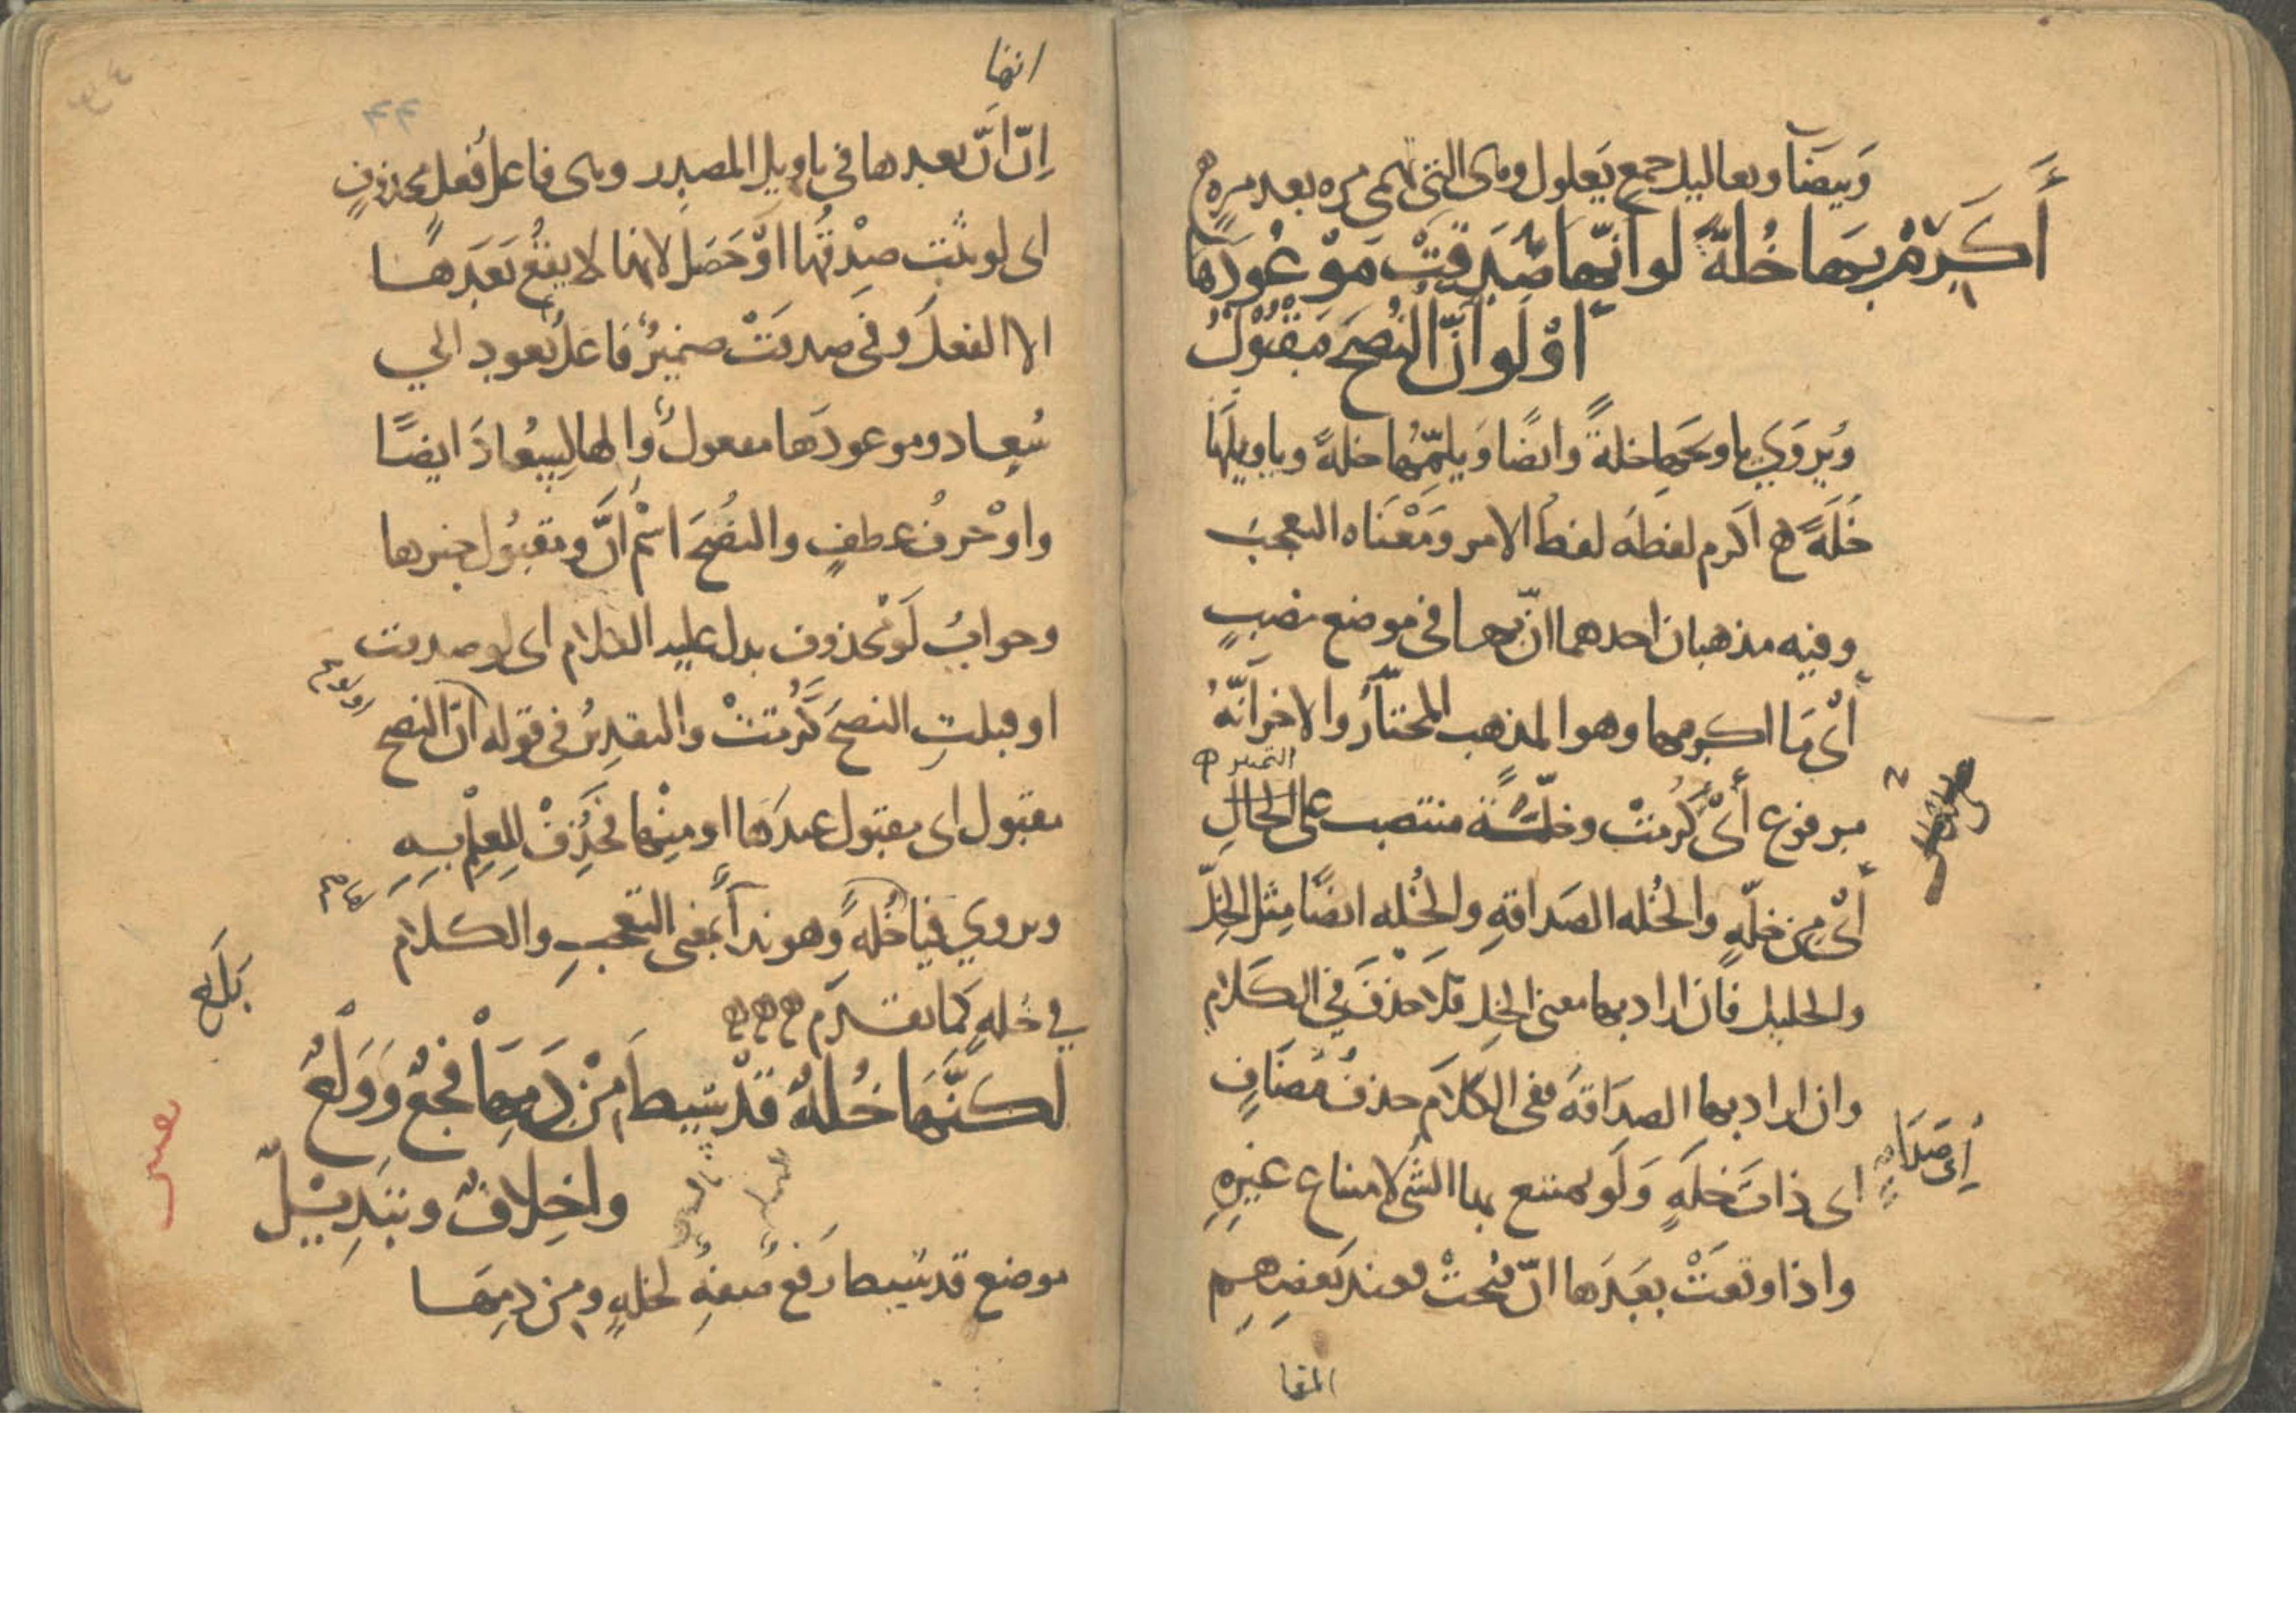 وبيضا ويعاليل جمع يعلول وهى التى تهمى مره بعد مره
أَكرِمْ بِهَا خُلةً لو أنّها صَدَقَتْ مَوْعُودَهَا
اوْ لَو انّ النُصْحَ مَقْبُولُ
ويُروَي يا ويحَها خلةً وايضًا وَيلمِّهُا خلةً ويا ويلها
خُلَةً اكرم لفظه لفظُ الامر وَمَعْنَاه التعجبَ
وفيه مذهبان احدهما انّ بها فى موضع نصبٍ
أىْ مَا اكرمها وهو المذهب المختارُ والاخر انّهُ
مرفوع أىْ كَرُمَتْ وخلّةً منتصب على الحالِ
التمييز
أىْ مِن خلّهٍ والخُله الصَداقةِ والخُله ايضًا مِثل الخِلّ
والخليل فان اراد بها معنى الخِل فلا حذفَ في الكَلامِ
وان اراد بها الصدَاقة ففى الكلامَ حذفُ مُضَافٍ
اى صَدَاقةٍ
اى ذاتَ خلَهٍ وَلَو يمتنع بها الشى لامتناع غيرِهِ
واذا وقعَتْ بعَدَها انّ فُتحتْ فعندَ بَعضِهِم
المقا
انها
إنّ انّ بعدها في تاويل المصدر وهى فاعل فعلٍ محذوفٍ
اى لو ثبت صِدْقُها اوْ حَصَل لانها لا يقعُ بَعَدهَا
الا الفعلَ وفى صدقَتْ ضميرٌ فاعلٌ يعود الي
سُعاد وموعودَها مفعول والها لِسعُادَ ايضًا
واوْ حرفُ عطفٍ والنُصْحَ اسْم انَّ ومقبُول خبرها
وجوابُ لَوْ محذوف يدل عليه الكلام اى لو صدقت
او قبلتِ النصحَ كَرُمَتْ والتقديرُ فى قوله انّ النصح
مقبول اى مقبول عندَها او مِنْها فحُذِفْ لِلعِلْمِ بِهِ
ويروي فيا خُلةً وهو نداً بمعنى التعجبِ والكلام
في خُلهٍ كَما تقدم
بلَغ
لكنَّهَا خُلةٌ قَدْ سِيطَ مِنْ دَمِهَا فَجْعٌ وَوَلْعٌ
واخلافٌ وتَبْدِيْلُ
موضع قد سِيط رَفع صفةِ لخلهٍ ومِن دمِهَا